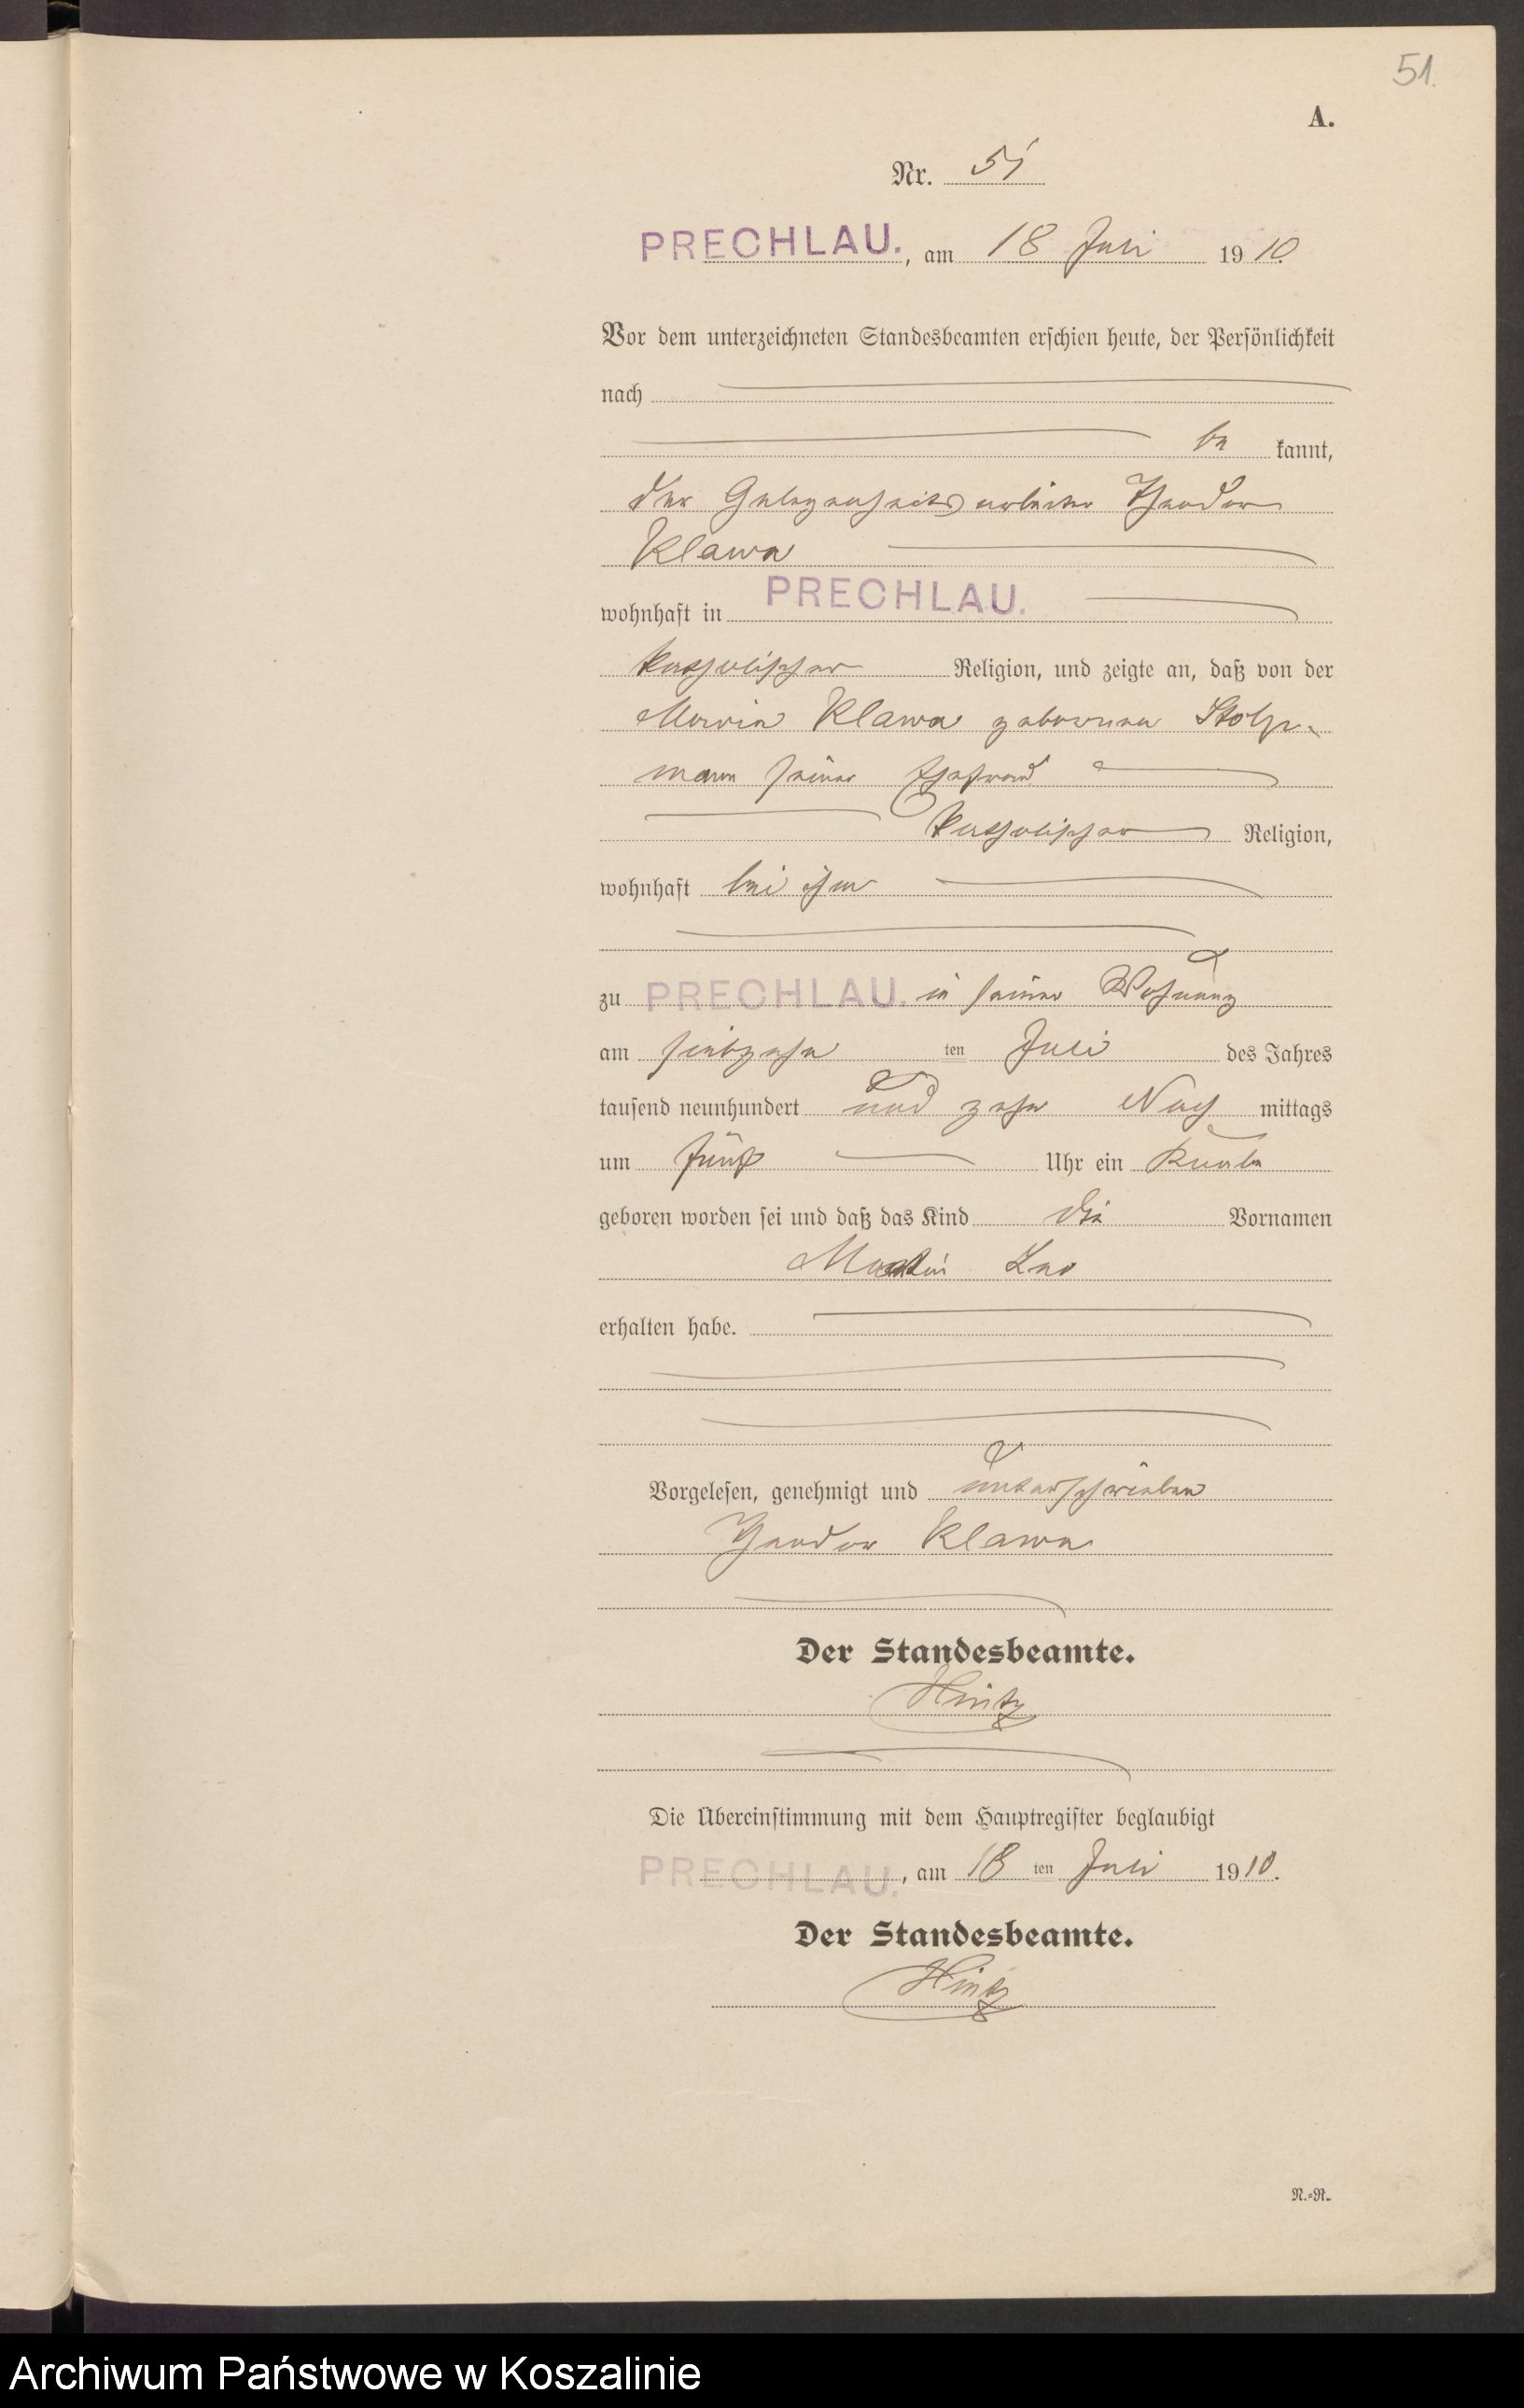 51.
A.
Nr. 51
PRECHLAU., am 18 Juli 1910.
Vor dem unterzeichneten Standesbeamten erschien heute, der Persönlichkeit
nach
be kannt,
der Gelegenheitsarbeiter Theodor
Klawa
wohnhaft in PRECHLAU.
katholischer Religion, und zeigte an, daß von der
Maria Klawa geborenen Stolp-
mann seiner Ehefrau
katholischer Religion,
wohnhaft bei ihm
zu PRECHLAU. in seiner Wohnung
am siebzehn ten Juli des Jahres
tausend neunhundert und zehn Nach mittags
um fünf Uhr ein Knabe
geboren worden sei und daß das Kind die Vornamen
Martin Leo
erhalten habe.
Vorgelesen, genehmigt und unterschrieben
Theodor Klawa
Der Standesbeamte.
Hintz
Die Übereinstimmung mit dem Hauptregister beglaubigt
PRECHLAU., am 18 ten Juli 1910.
Der Standesbeamte.
Hintz
N.=R.
Archiwum Państwowe w Koszalinie